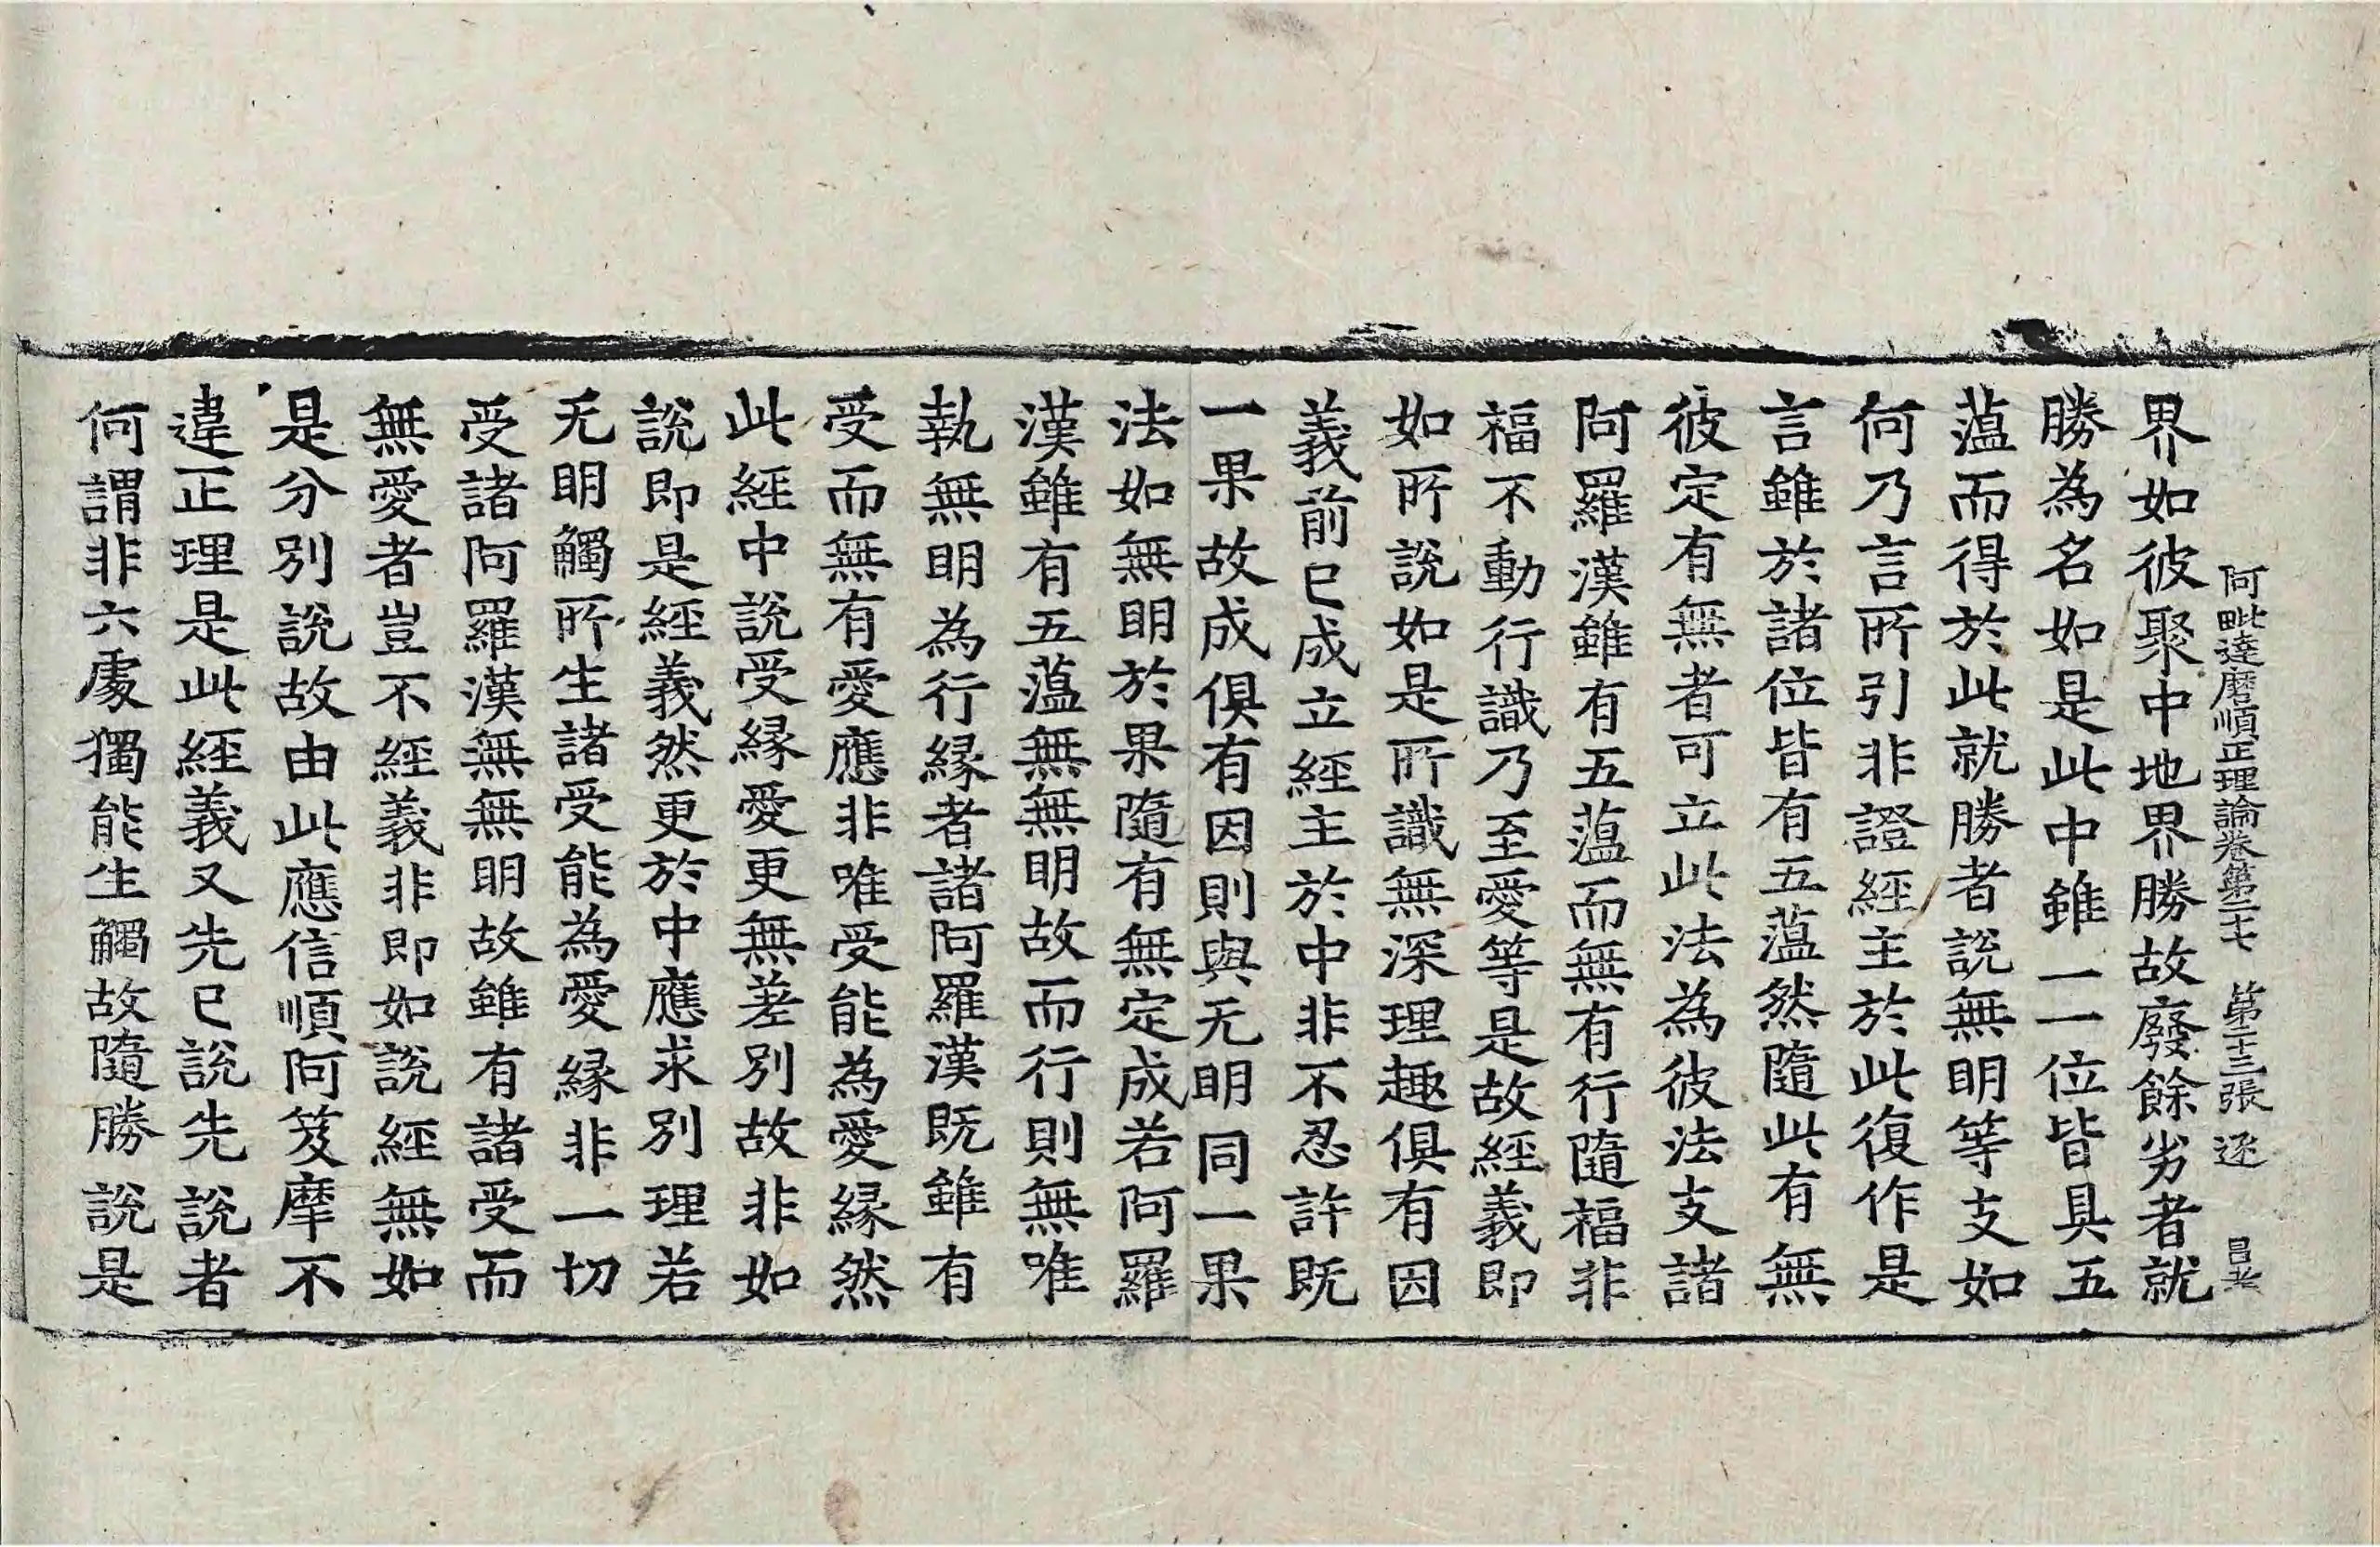 阿毗達磨順正理論卷第二十七 第二十三張 逐
界如彼聚中地界勝故廢餘劣者就
勝為名如是此中雖一一位皆具五
薀而得於此就勝者說無明等支如
何乃言所引非證經主於此復作是
言雖於諸位皆有五薀然隨此有無
彼定有無者可立此法為彼法支諸
阿羅漢雖有五薀而無有行隨福非
福不動行識乃至愛等是故經義即
如所說如是所識無深理趣俱有因
義前已成立經主於中非不忍許既
一果故成俱有因則與无明同一果
法如無明於果隨有無定成若阿羅
漢雖有五薀無無明故而行則無唯
執無明為行緣者諸阿羅漢既雖有
受而無有愛應非唯受能為愛緣然
此經中說受緣愛更無差別故非如
說即是經義然更於中應求別理若
无明觸所生諸受能為愛緣非一切
受諸阿羅漢無無明故雖有諸受而
無愛者豈不經義非即如說經無如
是分別說故由此應信順阿笈摩不
違正理是此經義又先已說先說者
何謂非六處獨能生觸故隨勝說是